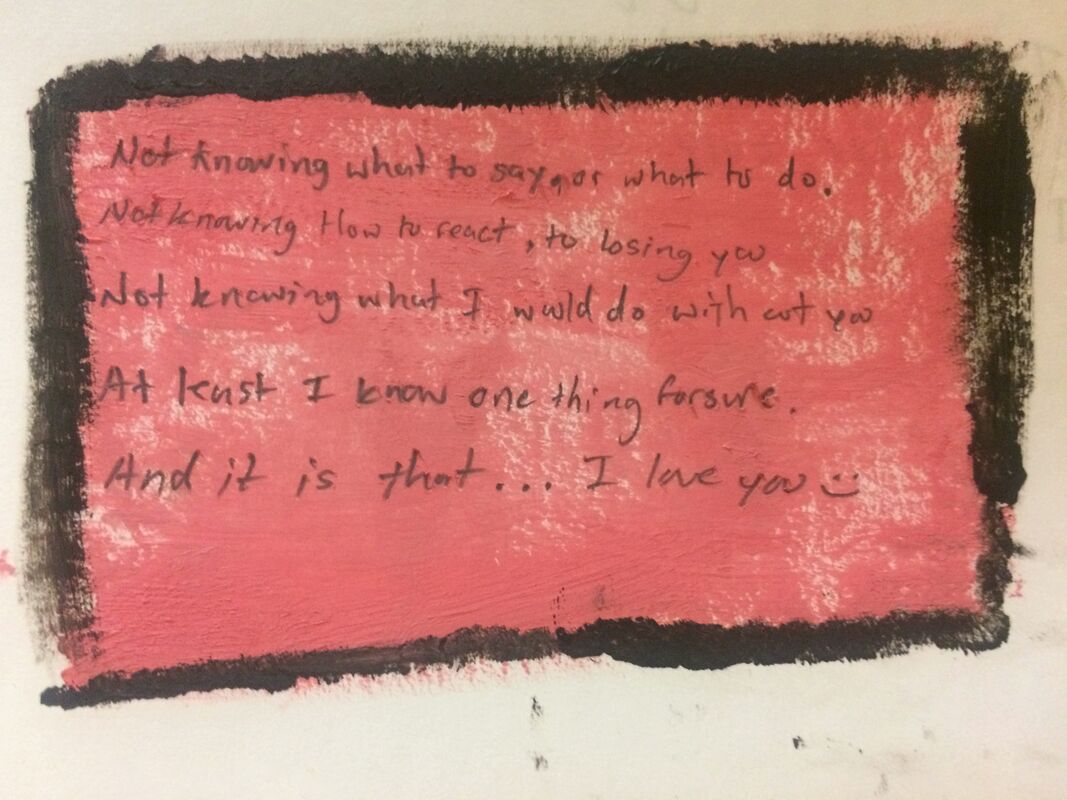 Not knowing what to say, or what to do.
Not knowing How to react, to losing you
Not knowing what I would do with out you
At least I know one thing forsure.
And it is that... I love you :)